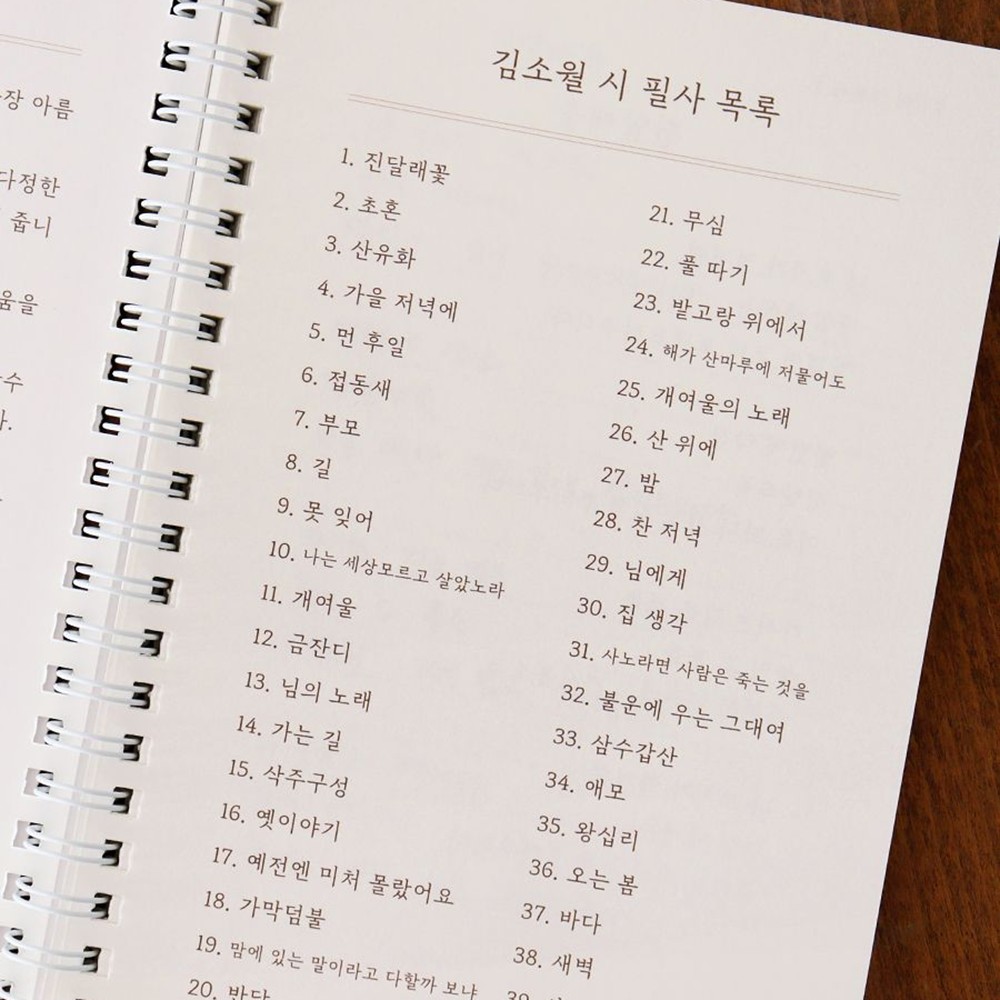 장 아름
다정한
줍니
움을
수
김소월 시 필사 목록
1. 진달래꽃
2. 초혼
3. 산유화
4. 가을 저녁에
5. 먼 후일
6. 접동새
7. 부모
8. 길
9. 못 잊어
10. 나는 세상모르고 살았노라
11. 개여울
12. 금잔디
13. 님의 노래
14. 가는 길
15. 삭주구성
16. 옛이야기
17. 예전엔 미처 몰랐어요
18. 가막덤불
19. 맘에 있는 말이라고 다할까 보냐
20. 반달
21. 무심
22. 풀 따기
23. 밭고랑 위에서
24. 해가 산마루에 저물어도
25. 개여울의 노래
26. 산 위에
27. 밤
28. 찬 저녁
29. 님에게
30. 집 생각
31. 사노라면 사람은 죽는 것을
32. 불운에 우는 그대여
33. 삼수갑산
34. 애모
35. 왕십리
36. 오는 봄
37. 바다
38. 새벽
39.